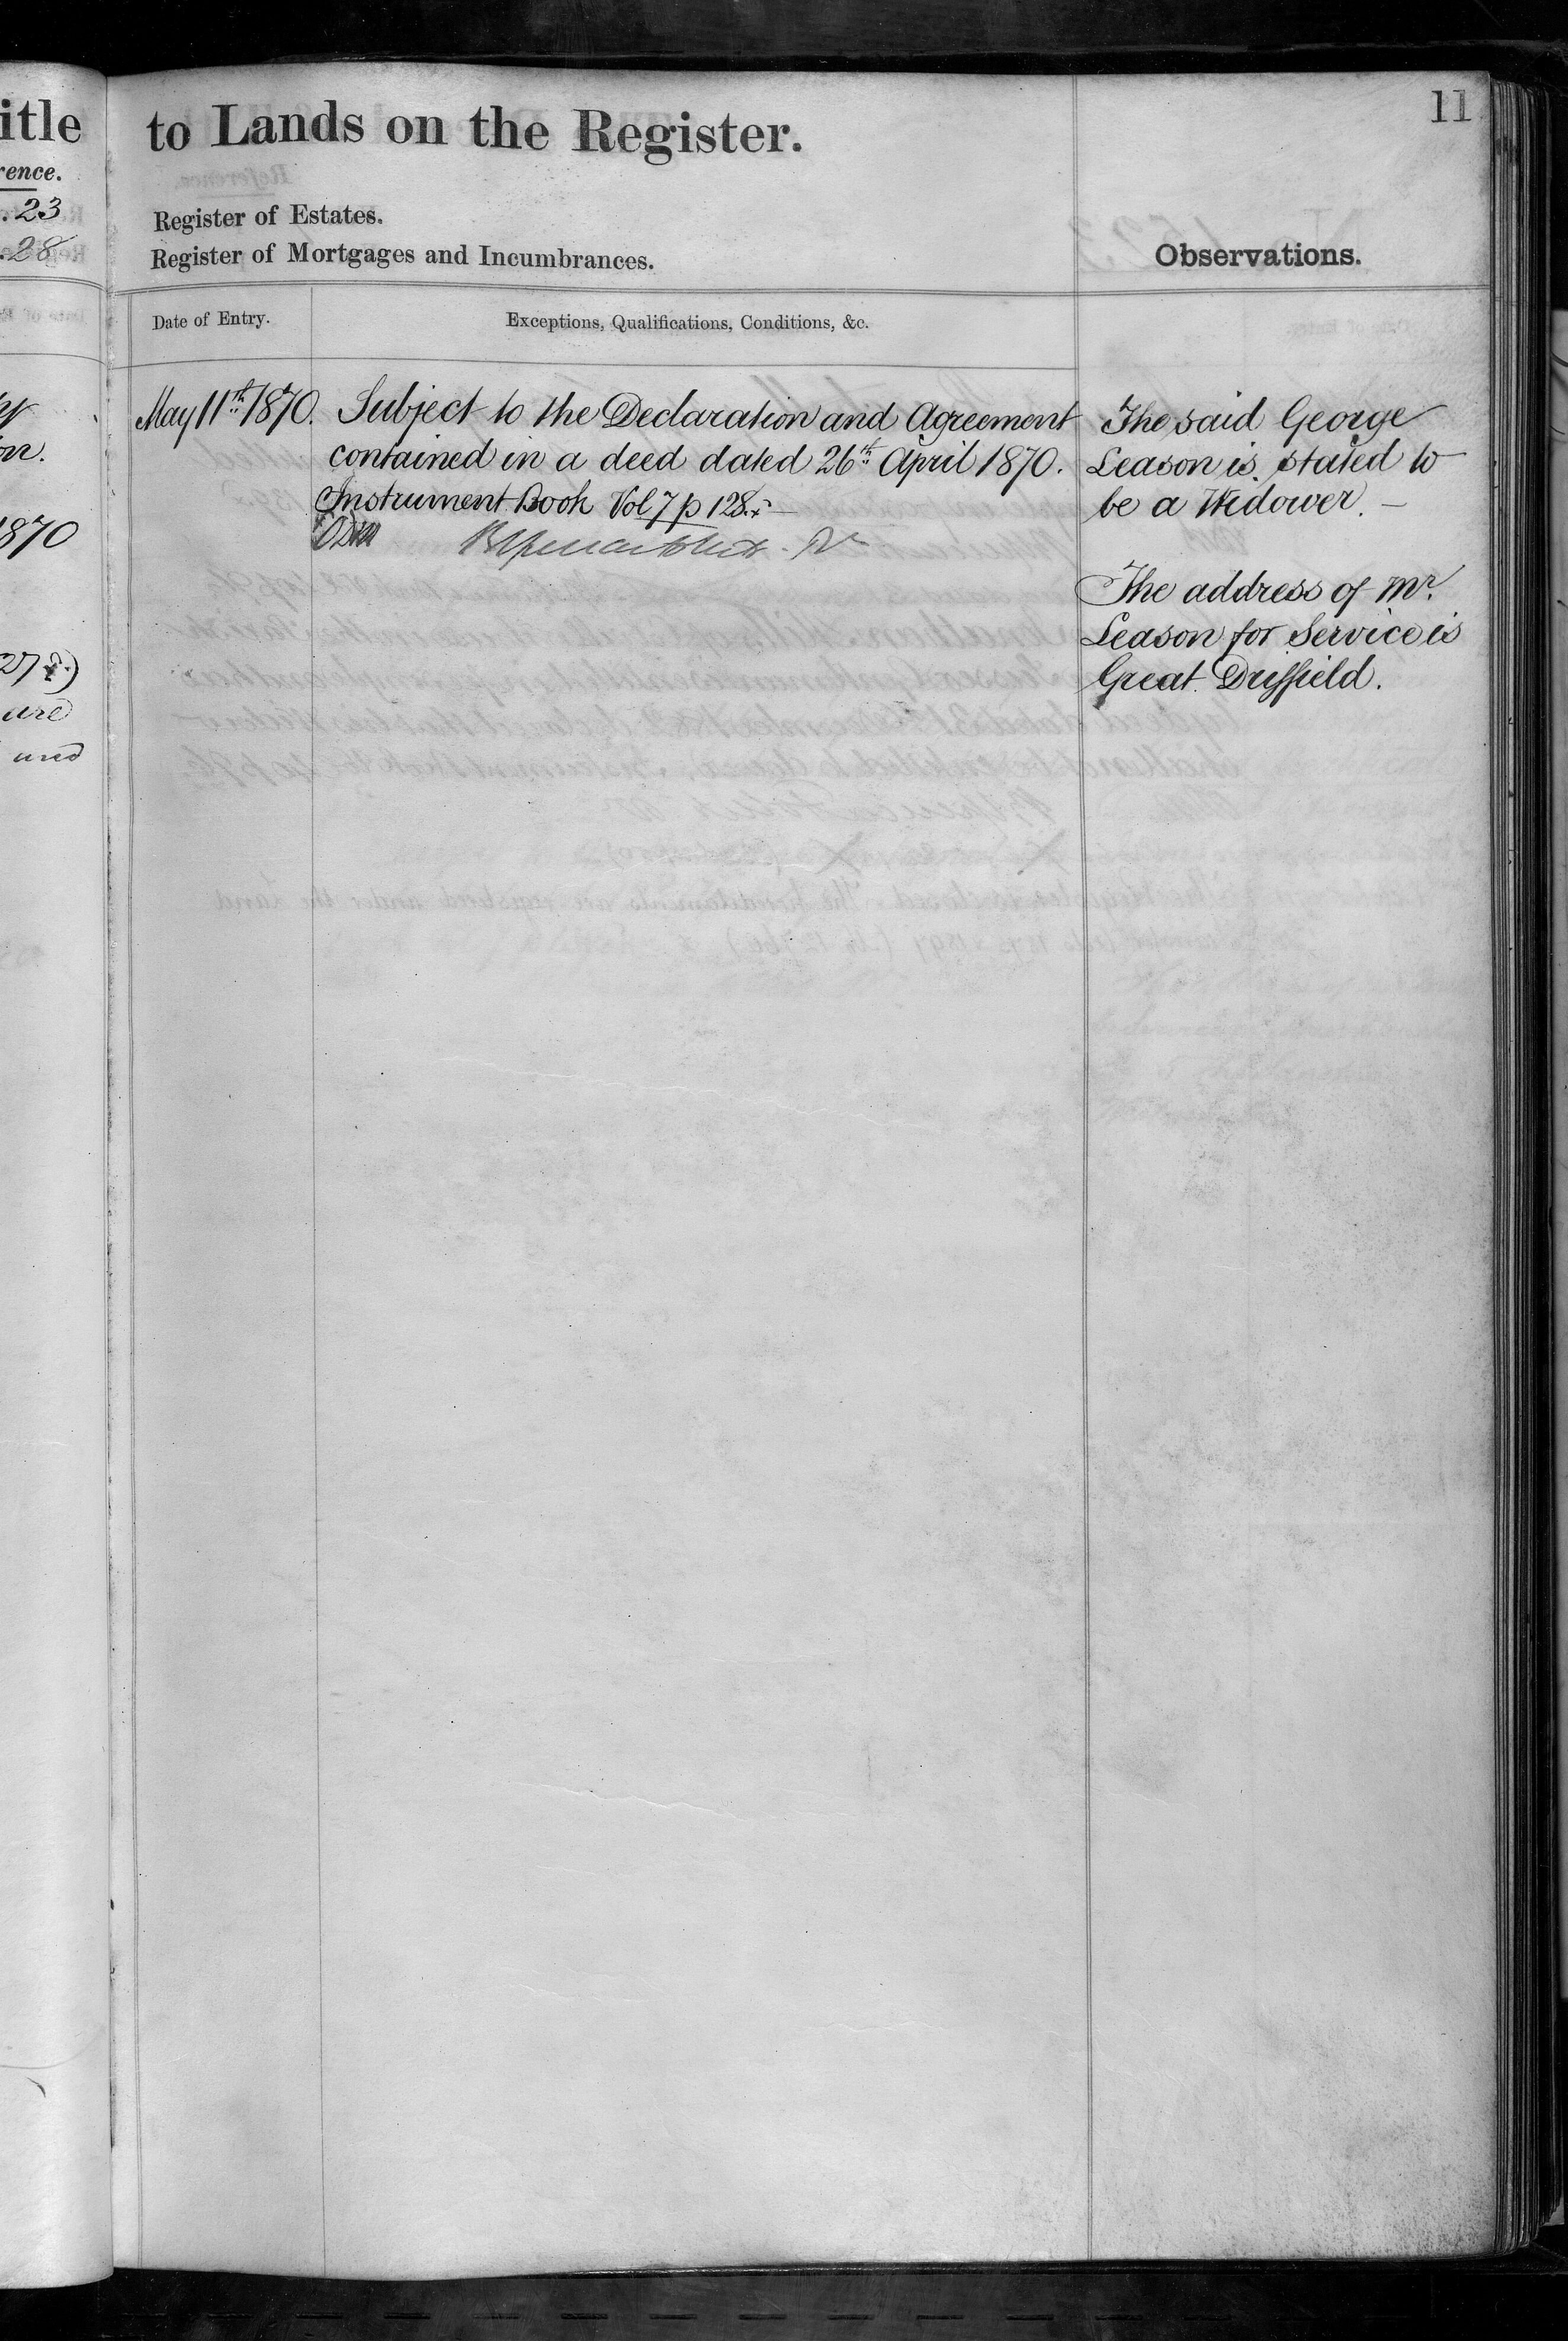 itle
rence.
.23
.28
on.
1870
27
are
and
to Lands on the Register.
11
Register of Estates.
Register of Mortgages and Incumbrances.
Observations.
Date of Entry.
Exceptions, Qualifications, Conditions, &c.
May 11th 1870.
Subject to the Declaration and Agreement
contained in a deed dated 26th April 1870.
Instrument Book Vol 7 p 128.
The said George
Leason is stated to
be a Widower. —
The address of Mr.
Leason for Service is
Great Driffield.